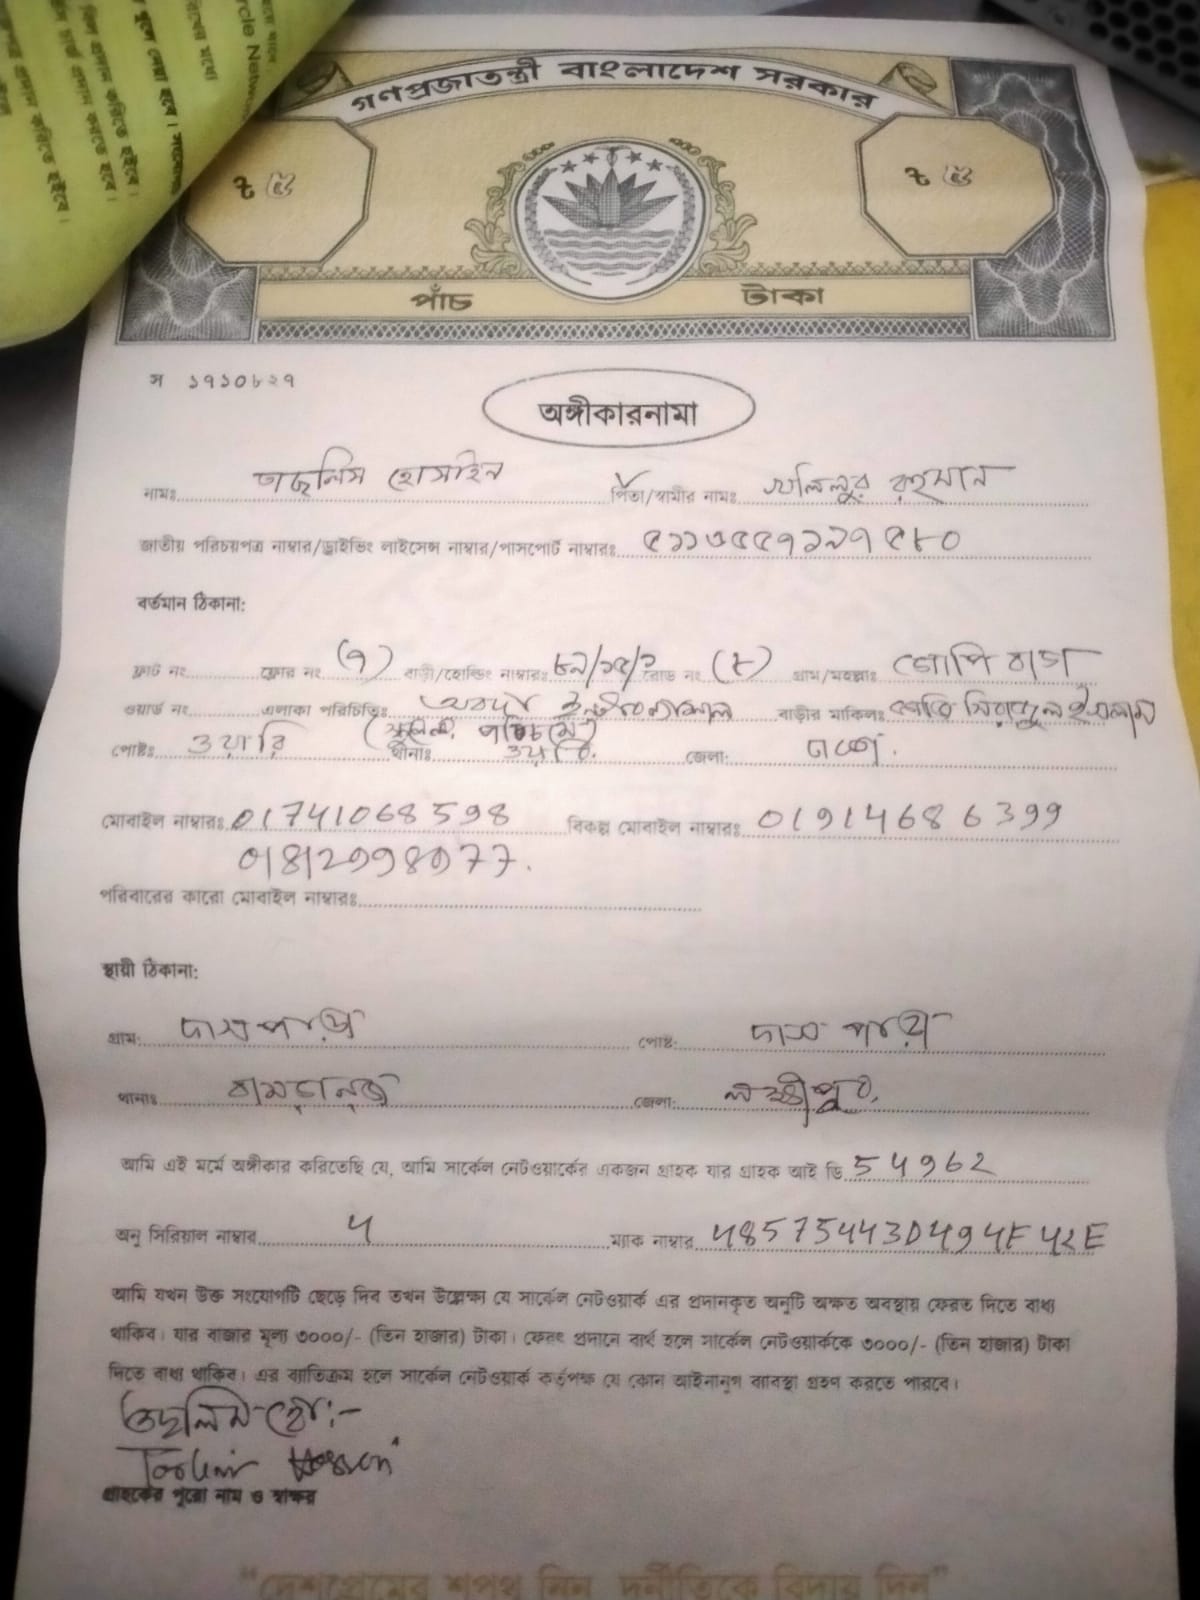 rcle Netwo
গণপ্রজাতন্ত্রী বাংলাদেশ সরকার
ট ৫ ট ৫
পাঁচ টাকা
স ১৭১০৮২৭
অঙ্গীকারনামা
নামঃ তাছলিম হোসাইন পিতা/স্বামীর নামঃ খলিলুর রহমান
জাতীয় পরিচয়পত্র নাম্বার/ড্রাইভিং লাইসেন্স নাম্বার/পাসপোর্ট নাম্বারঃ ৫১১৩৫৫৭১৯৭৫৮০
বর্তমান ঠিকানা:
ফ্লাট নং ফ্লোর নং (৭) বাড়ী/হোল্ডিং নাম্বারঃ ৮৯/১৫/১ রোড নং (৮) গ্রাম/মহল্লাঃ গোপি বাগ
ওয়ার্ড নং এলাকা পরিচিতিঃ ইন্টারন্যাশনাল বাড়ীর মালিকঃ সিরাজুল ইসলাম
(স্কুলের পশ্চিমে)
পোষ্টঃ ওয়ারি থানাঃ ওয়ারি. জেলা: ঢাকা.
মোবাইল নাম্বারঃ 01741068598 বিকল্প মোবাইল নাম্বারঃ 01914686399
01812998077.
পরিবারের কারো মোবাইল নাম্বারঃ
স্থায়ী ঠিকানা:
গ্রাম: দাসপাড়া পোষ্ট: দাস পাড়া
থানাঃ রামগঞ্জ জেলা: লক্ষ্মীপুর.
আমি এই মর্মে অঙ্গীকার করিতেছি যে, আমি সার্কেল নেটওয়ার্কের একজন গ্রাহক যার গ্রাহক আই ডি 54962
অনু সিরিয়াল নাম্বার 4 ম্যাক নাম্বার 485754430494F42E
আমি যখন উক্ত সংযোগটি ছেড়ে দিব তখন উল্লেক্ষা যে সার্কেল নেটওয়ার্ক এর প্রদানকৃত অনুটি অক্ষত অবস্থায় ফেরত দিতে বাধ্য
থাকিব। যার বাজার মূল্য ৩০০০/- (তিন হাজার) টাকা। ফেরৎ প্রদানে ব্যর্থ হলে সার্কেল নেটওয়ার্ককে ৩০০০/- (তিন হাজার) টাকা
দিতে বাধ্য থাকিব। এর ব্যতিক্রম হলে সার্কেল নেটওয়ার্ক কর্তৃপক্ষ যে কোন আইনানুগ ব্যাবস্থা গ্রহণ করতে পারবে।
তাছলিম হো:-
Taslim Hossen
গ্রাহকের পুরো নাম ও স্বাক্ষর
"দেশপ্রেমের শপথ নিন, দুর্নীতিকে বিদায় দিন"